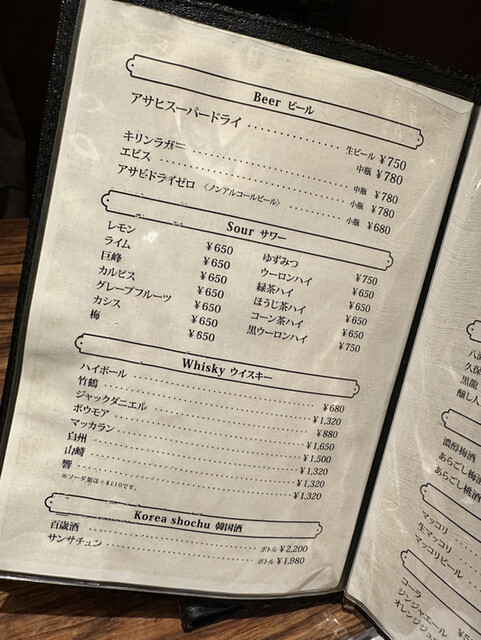 Beer ビール
アサヒスーパードライ 生ビール ¥750
中瓶 ¥780
キリンラガー 中瓶 ¥780
エビス 小瓶 ¥780
アサヒドライゼロ 〈ノンアルコールビール〉 小瓶 ¥680
Sour サワー
レモン ¥650
ライム ¥650
巨峰 ¥650
カルピス ¥650
グレープフルーツ ¥650
カシス ¥650
梅 ¥650
ゆずみつ ¥750
ウーロンハイ ¥650
緑茶ハイ ¥650
ほうじ茶ハイ ¥650
コーン茶ハイ ¥650
黒ウーロンハイ ¥750
Whisky ウイスキー
ハイボール ¥680
竹鶴 ¥1,320
ジャックダニエル ¥880
ボウモア ¥1,650
マッカラン ¥1,500
白州 ¥1,320
山崎 ¥1,320
響 ¥1,320
※ソーダ割は+¥110です。
Korea shochu 韓国酒
百歳酒 ボトル ¥2,200
サンサチュン ボトル ¥1,980
黒龍
醸し人
濃醇梅酒
あらごし梅酒
あらごし桃酒
マッコリ
生マッコリ
マッコリビール
コーラ
ジンジャエール